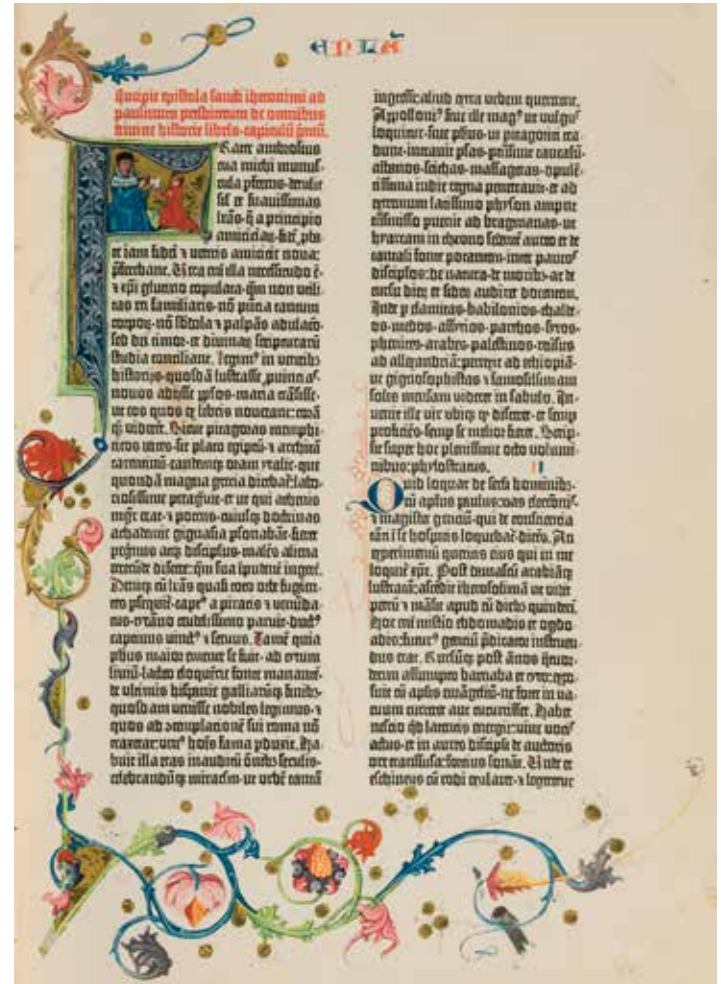 EPLA
Incipit epistola sancti iheronimi ad
paulinum presbiterum de omnibus
divine historie libris·capitulū pmū.
Frater ambrosius
tua michi munus-
cula pferens·detulit
sil et suavissimas
lrās·q̄ a principio
amiciciar̄·fidē pba-
te iam fidei ⁊ veteris amicicie nova:
pferebant. Vera eni illa necessitudo ē·
⁊ xpi glutino copulata·qm non utili-
tas rei familiaris·nō pncia tantum
corpor̄·nō sbdola ⁊ palpās adulacō·
sed dei timor·et divinar̄ scripturarū
studia conciliant. Legim⁹ in veterib⁹
historijs·quosdā lustrasse puincias·
novos adijsse pplos·maria trāsisse·
ut eos quos ex libris noverant: corā
q̄ viderēt. Sicut pitagoras memphi-
ticos vates·sic plato egiptū·⁊ architā
tarentinū·eandemq̄ oram ytalie·que
quondā magna grecia dicebat̄: labo-
riosissime peragravit·et ut qui athenis
mgr̄ erat·⁊ potens·cuiusq̄ doctrinas
achademie gignasia psonabāt·fieret
pegrinus atq̄ discipulus·malēs aliena
verecūde discere: qm sua ipudent̄ ingere͛.
Deniq̄ cū lrās quasi toto orbe fugien-
tes pseqt̄·capt⁹ a piratis ⁊ venūda-
tus·tyrāno crudelissimo paruit·duct⁹
captivus vinct⁹ ⁊ servus. Tamē quia
phus maior emente se fuit·ad tytum
liviū·lacteo eloquētie fonte manantē·
de ultimis hispanie galliarūq̄ finib⁹
quosdam venisse nobiles legimus·⁊
quos ad ɔtemplacionē sui roma nō
traxerat: uni⁹ hoīs fama pduxit. Ha-
buit illa etas inauditū ōnib⁹ seculis·
celebrandūq̄ miraclm·ut urbē tantā
ingressi: aliud extra urbem quererent.
Appolloni⁹ sive ille mag⁹ ut vulgus
loquitur·sive phus·ut pitagorici tra-
dunt·intravit psas·ptransivit caucasū·
albanos·scithas·massagetas·opulē-
tissima indie regna penetravit·et ad
extremum latissimo physon ampne
trāsmisso puenit ad bragmanas·ut
hyarcam in throno sedentē aureo et de
tantali fonte potantem·inter paucos
discipulos·de natura·de moribs·ac de
cursu dierx et sidex audiret docentem.
Inde p elamitas·babilonios·chalde-
os·medos·assyrios·parthos·syros·
phenices·arabes·palestinos·reversus
ad allexandriā: perrexit ad ethiopiā·
ut gignosophistas ⁊ famosissimam
solis mensam videret in sabulo. In-
venit ille vir ubiq̄ qd disceret·et semp
proficiēs·semp se melior fieret. Scrip-
sit super hoc plenissime octo volumi-
nibus: phylostratus. II
Quid loquar de secli hominib⁹·
cū aplus paulus: vas electiōis·
⁊ magister genciū·qui de consciencia
tanti se hospitis loquebat̄·dicēs. An
experimentū queritis eius qui in me
loquit̄ xpc. Post damascū arabiāq̄
lustratā: ascēdit iherosolimā ut videt
petrū ⁊ māsit apud eū dieb⁹ quindeci.
Hoc eni misterio ebdomadis et ogdo-
adis: futur⁹ genciū pdicator instruen-
dus erat. Rursūq̄ post ānos quatuor-
decim assumpto barnaba et tyto: expo-
suit cū aplis ewāgeliū·ne forte in va-
cuum curreret aut cucurrisset. Habet
nescio qd latentis energie: vive vocis
actus·et in aures discipuli de auctoris
ore transfusa: forcius sonat. Unde et
eschineus cū rodi exularet·⁊ legeretur